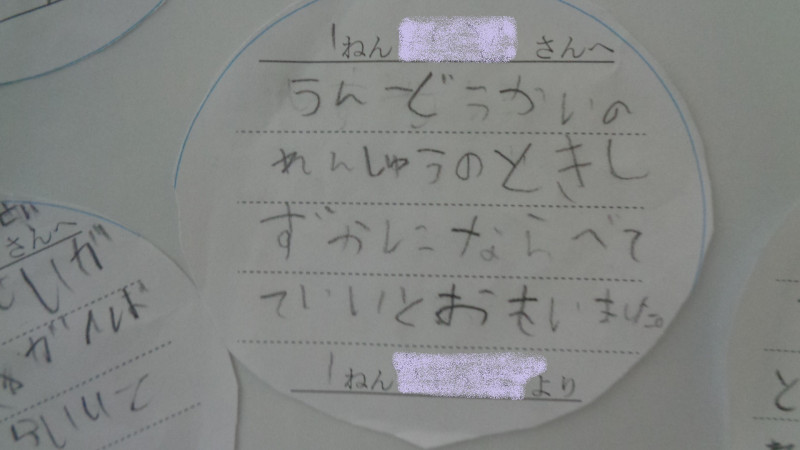 1ねん さんへ
うんどうかいの
れんしゅうのときし
ずかにならべて
ていいとおもいました。
1ねん より
さんへ